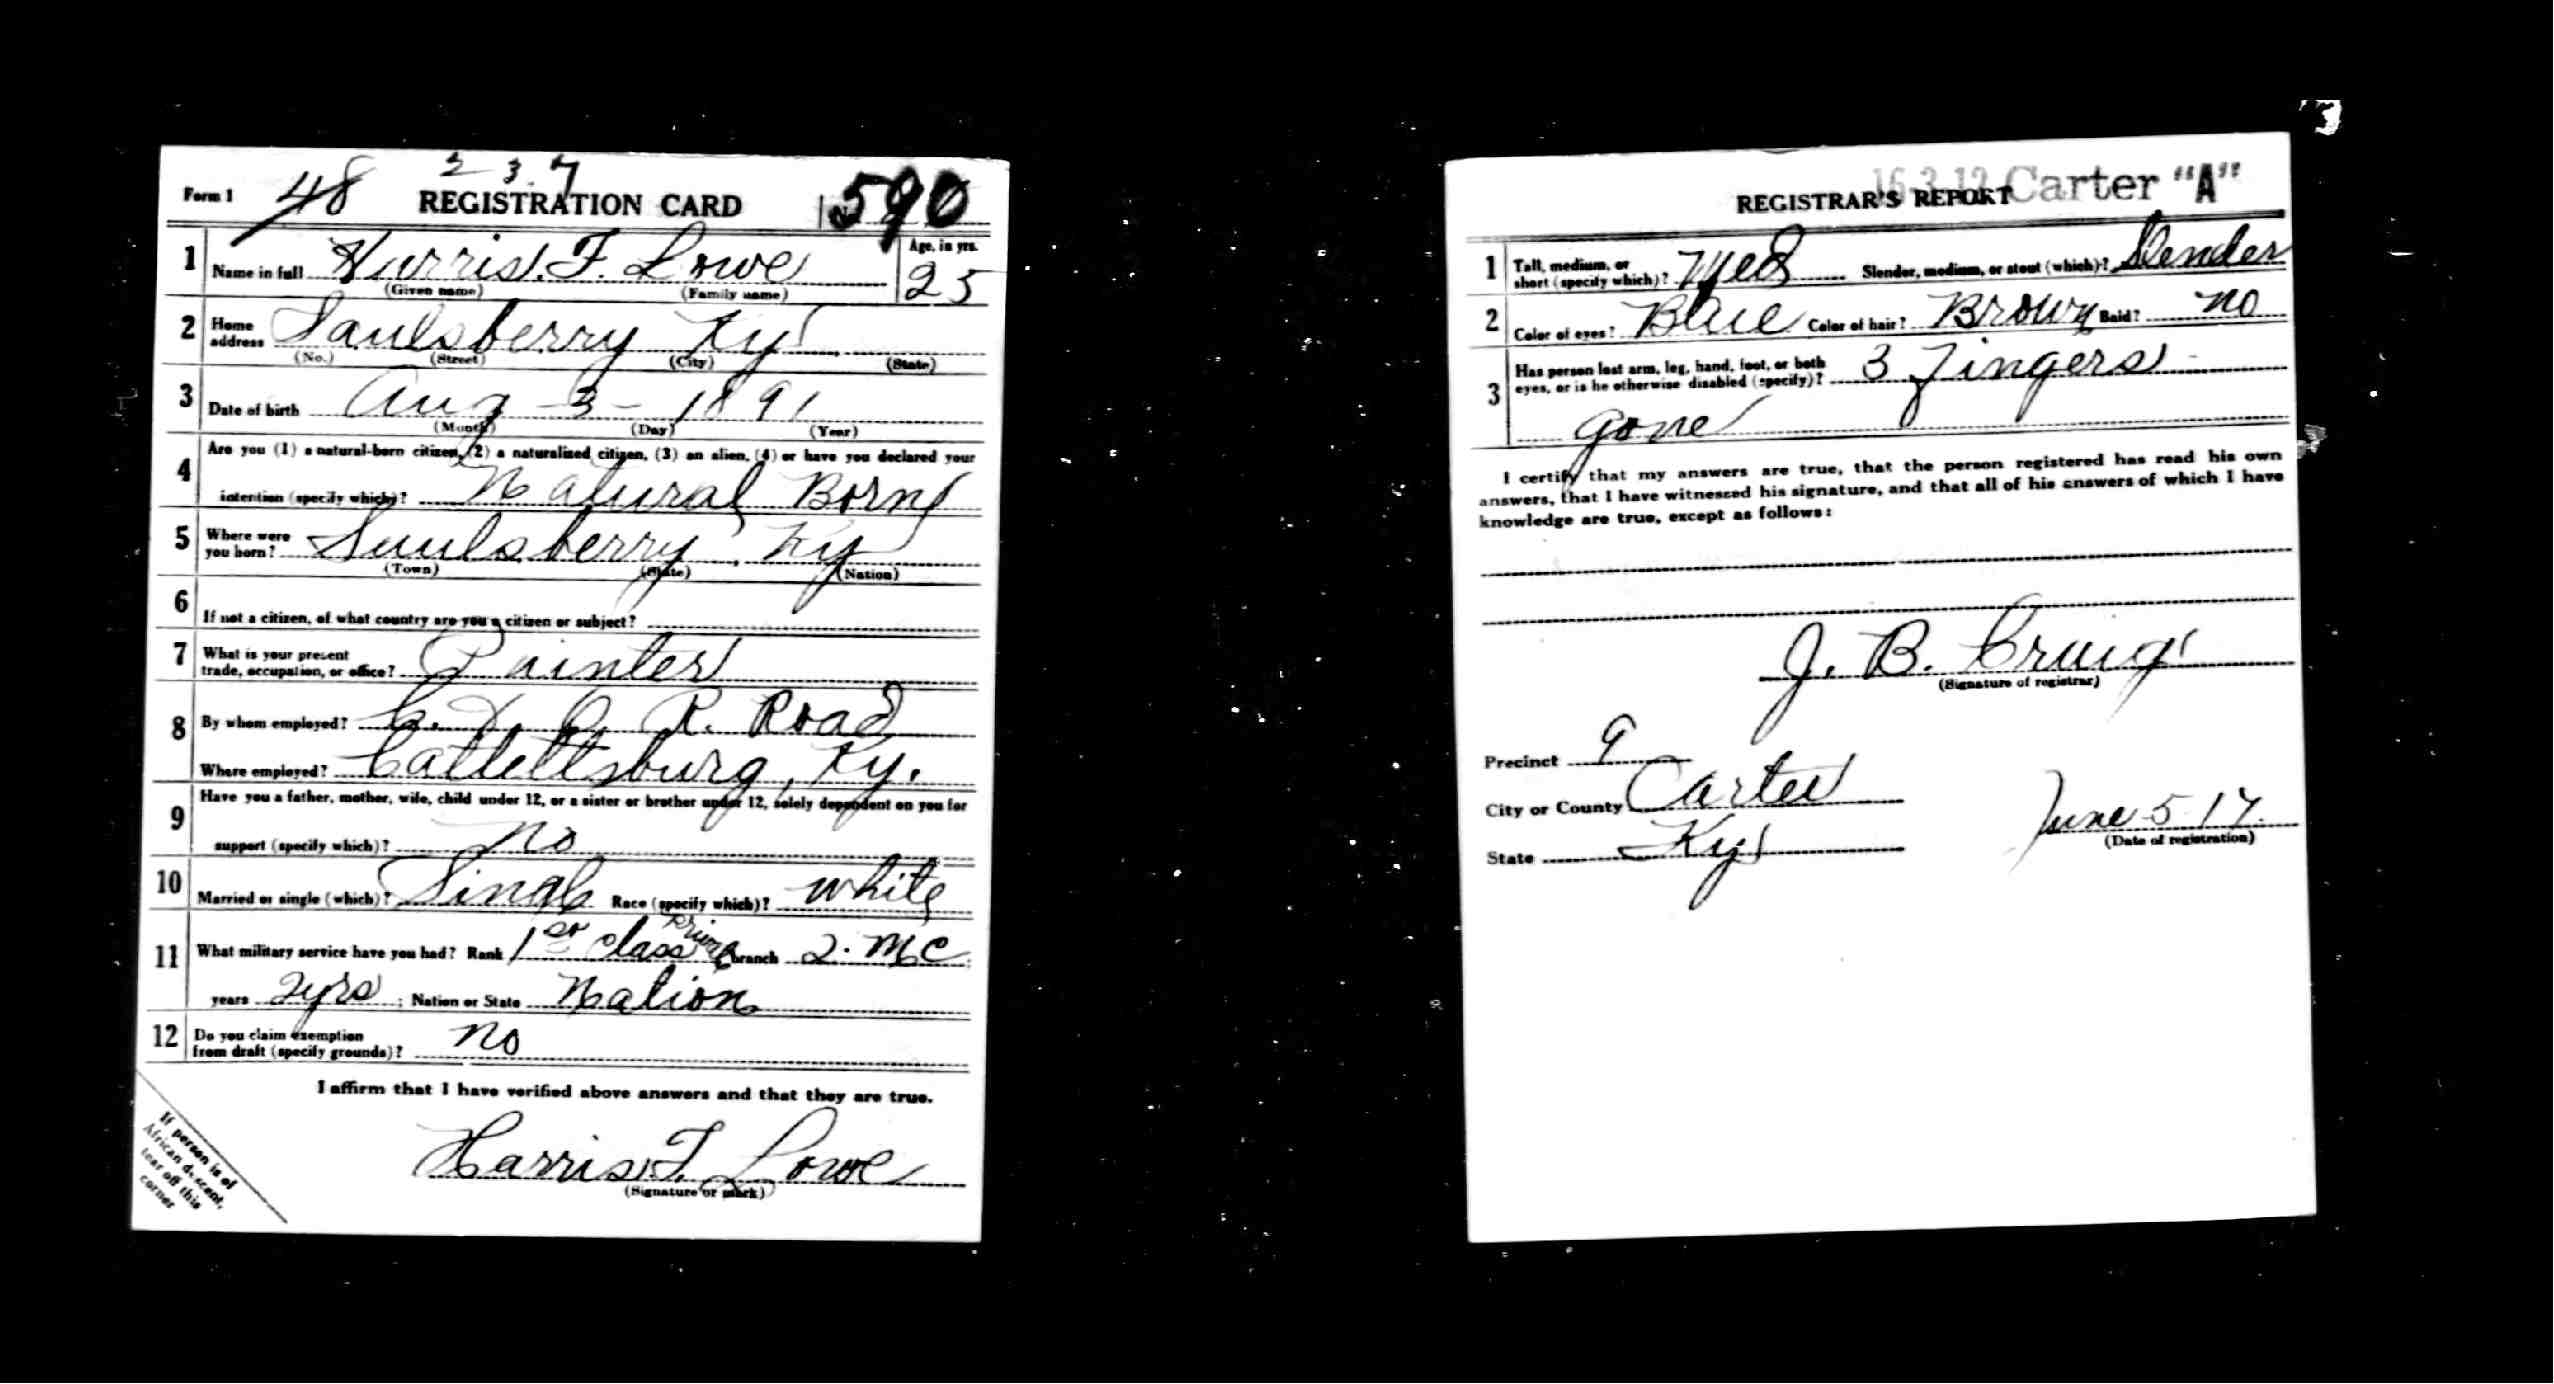 Form 1 48 2 3 7 REGISTRATION CARD No. 590
1 Name in full Harris. F. Lowe Age, in yrs. 25
(Given name) (Family name)
2 Home address Saulsberry Ky
(No.) (Street) (City) (State)
3 Date of birth Aug - 3 - 1891
(Month) (Day) (Year)
4 Are you (1) a natural-born citizen, (2) a naturalized citizen, (3) an alien, (4) or have you declared your
intention (specify which)? Natural Born
5 Where were you born? Saulsberry, Ky
(Town) (State) (Nation)
6 If not a citizen, of what country are you a citizen or subject?
7 What is your present
trade, occupation, or office? Painter
8 By whom employed? C. & O. R. Road
Where employed? Catlettsburg, Ky.
9 Have you a father, mother, wife, child under 12, or a sister or brother under 12, solely dependent on you for
support (specify which)? No
10 Married or single (which)? Single Race (specify which)? White
11 What military service have you had? Rank 1st class branch 2. M C
years 2yrs ; Nation or State Nation
12 Do you claim exemption
from draft (specify grounds)? No
I affirm that I have verified above answers and that they are true.
Harris F. Lowe
(Signature or mark)
If person is of
African descent,
tear off this
corner
16-3-12 Carter "A"
REGISTRAR'S REPORT
1 Tall, medium, or
short (specify which)? Med Slender, medium, or stout (which)? Slender
2 Color of eyes? Blue Color of hair? Brown Bald? No
3 Has person lost arm, leg, hand, foot, or both
eyes, or is he otherwise disabled (specify)? 3 Fingers
gone
I certify that my answers are true, that the person registered has read his own
answers, that I have witnessed his signature, and that all of his answers of which I have
knowledge are true, except as follows:
J. B. Craig
(Signature of registrar)
Precinct 9
City or County Carter
State Ky
June 5 17.
(Date of registration)